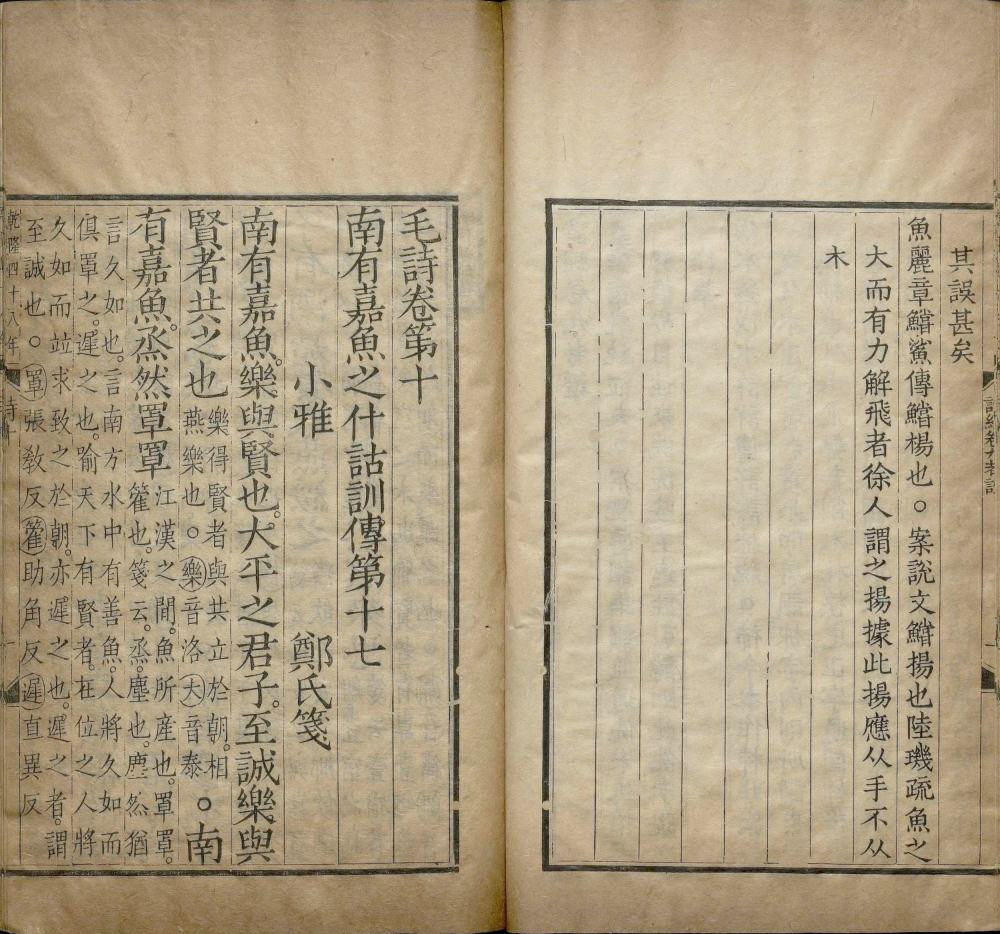 其誤甚矣
魚麗章鱨鯊傳鱨楊也○案說文鱨揚也陸璣疏魚之
大而有力解飛者徐人謂之揚據此揚應从手不从
木
毛詩卷第十
南有嘉魚之什詁訓傳第十七
小雅 鄭氏箋
南有嘉魚樂與賢也大平之君子至誠樂與
賢者共之也
樂得賢者與共立於朝相
燕樂也○樂音洛大音泰
○南
有嘉魚烝然罩罩
江漢之間魚所產也罩罩
籗也箋云烝塵也塵然猶
言久如也言南方水中有善魚人將久如而
俱罩之遲之也喻天下有賢者在位之人將
久如而竝求致之於朝亦遲之也遲之者謂
至誠也○罩張敎反籗助角反遲直異反
乾隆四十八年